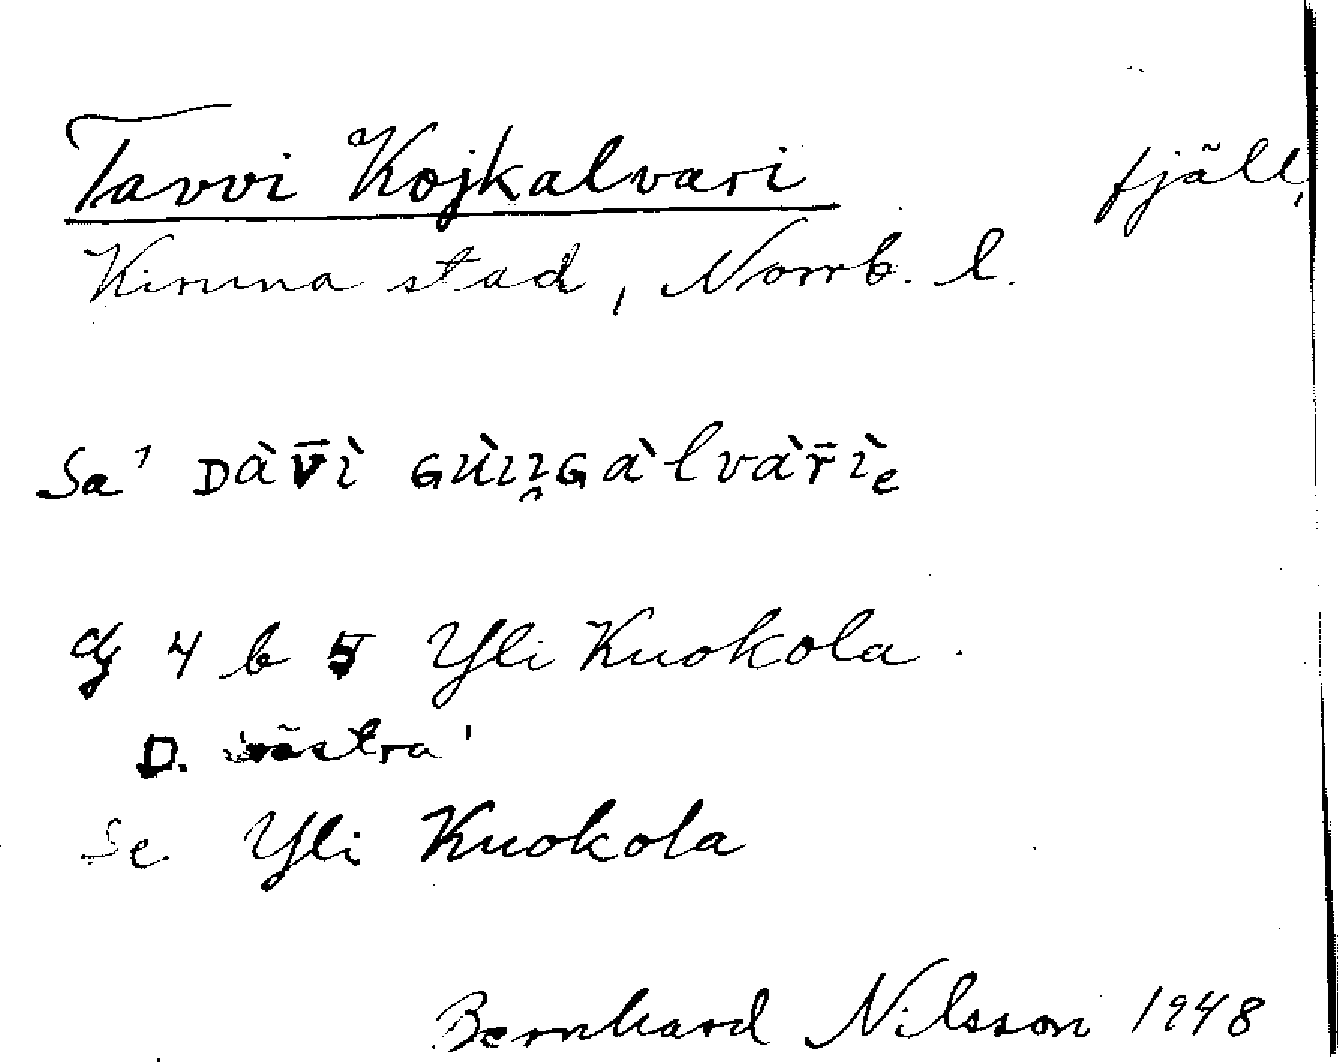 Tavvi Kojkalvari fjäll,
Kiruna stad, Norrb. l.
Sa' ᴅàv̄ì ɢùı̯ɢàlvàr̄ìe
4 b 5 Yli Kuokola.
D. västra'
Se Yli Kuokola
Bernhard Nilsson 1948